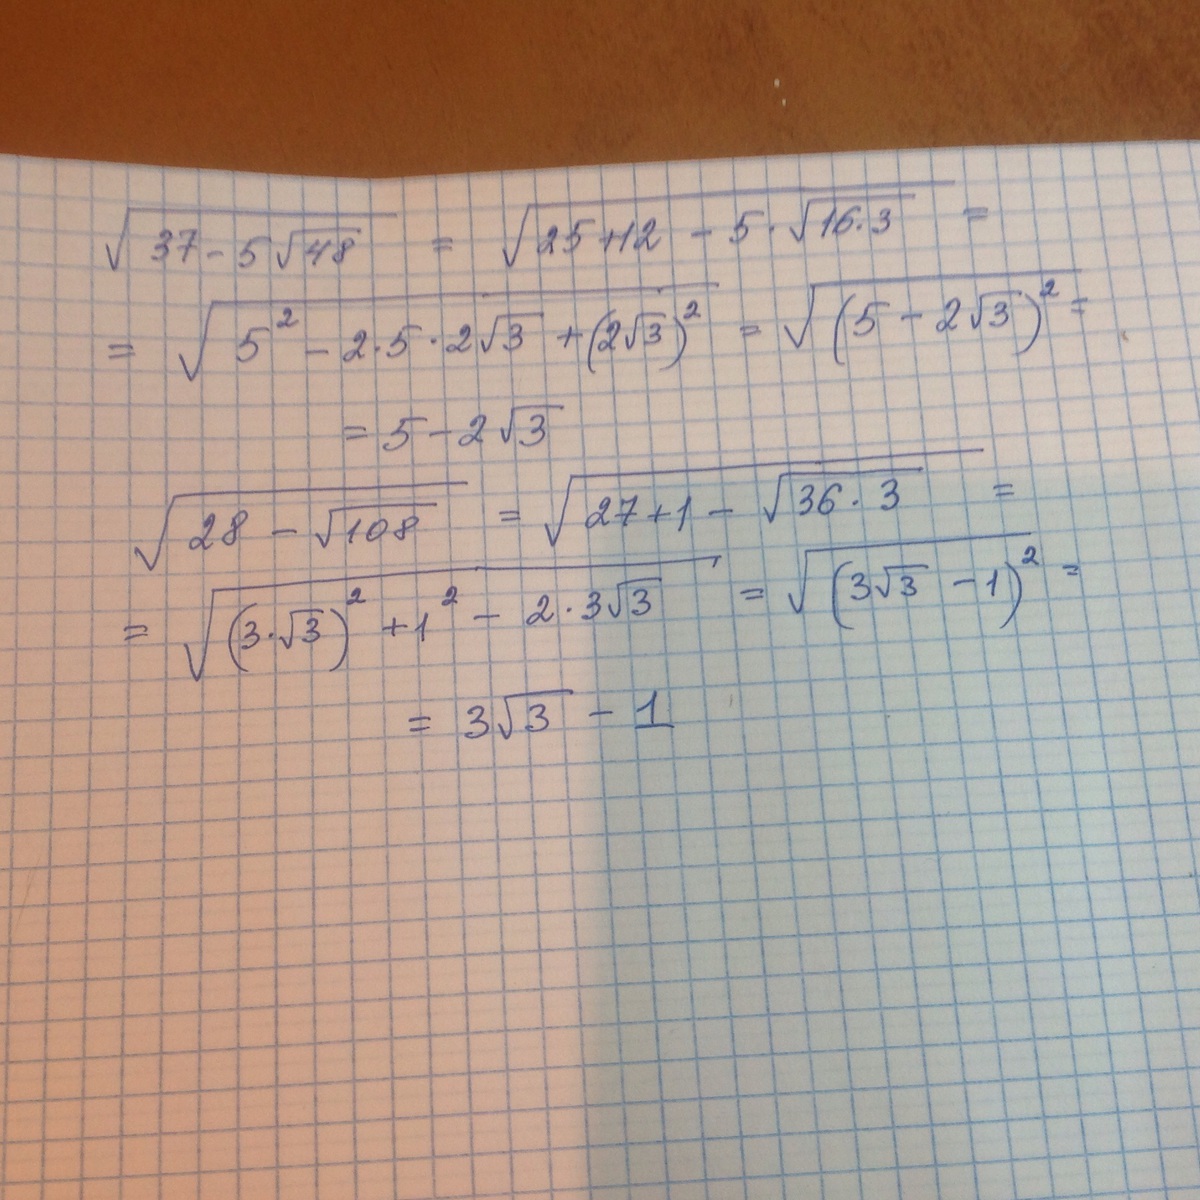 √(37 - 5√48) = √(25 + 12 - 5·√(16·3)) =
= √(5² - 2·5·2√3 + (2√3)²) = √((5 - 2√3)²) =
= 5 - 2√3
√(28 - √108) = √(27 + 1 - √(36·3)) =
= √((3·√3)² + 1² - 2·3√3) = √((3√3 - 1)²) =
= 3√3 - 1